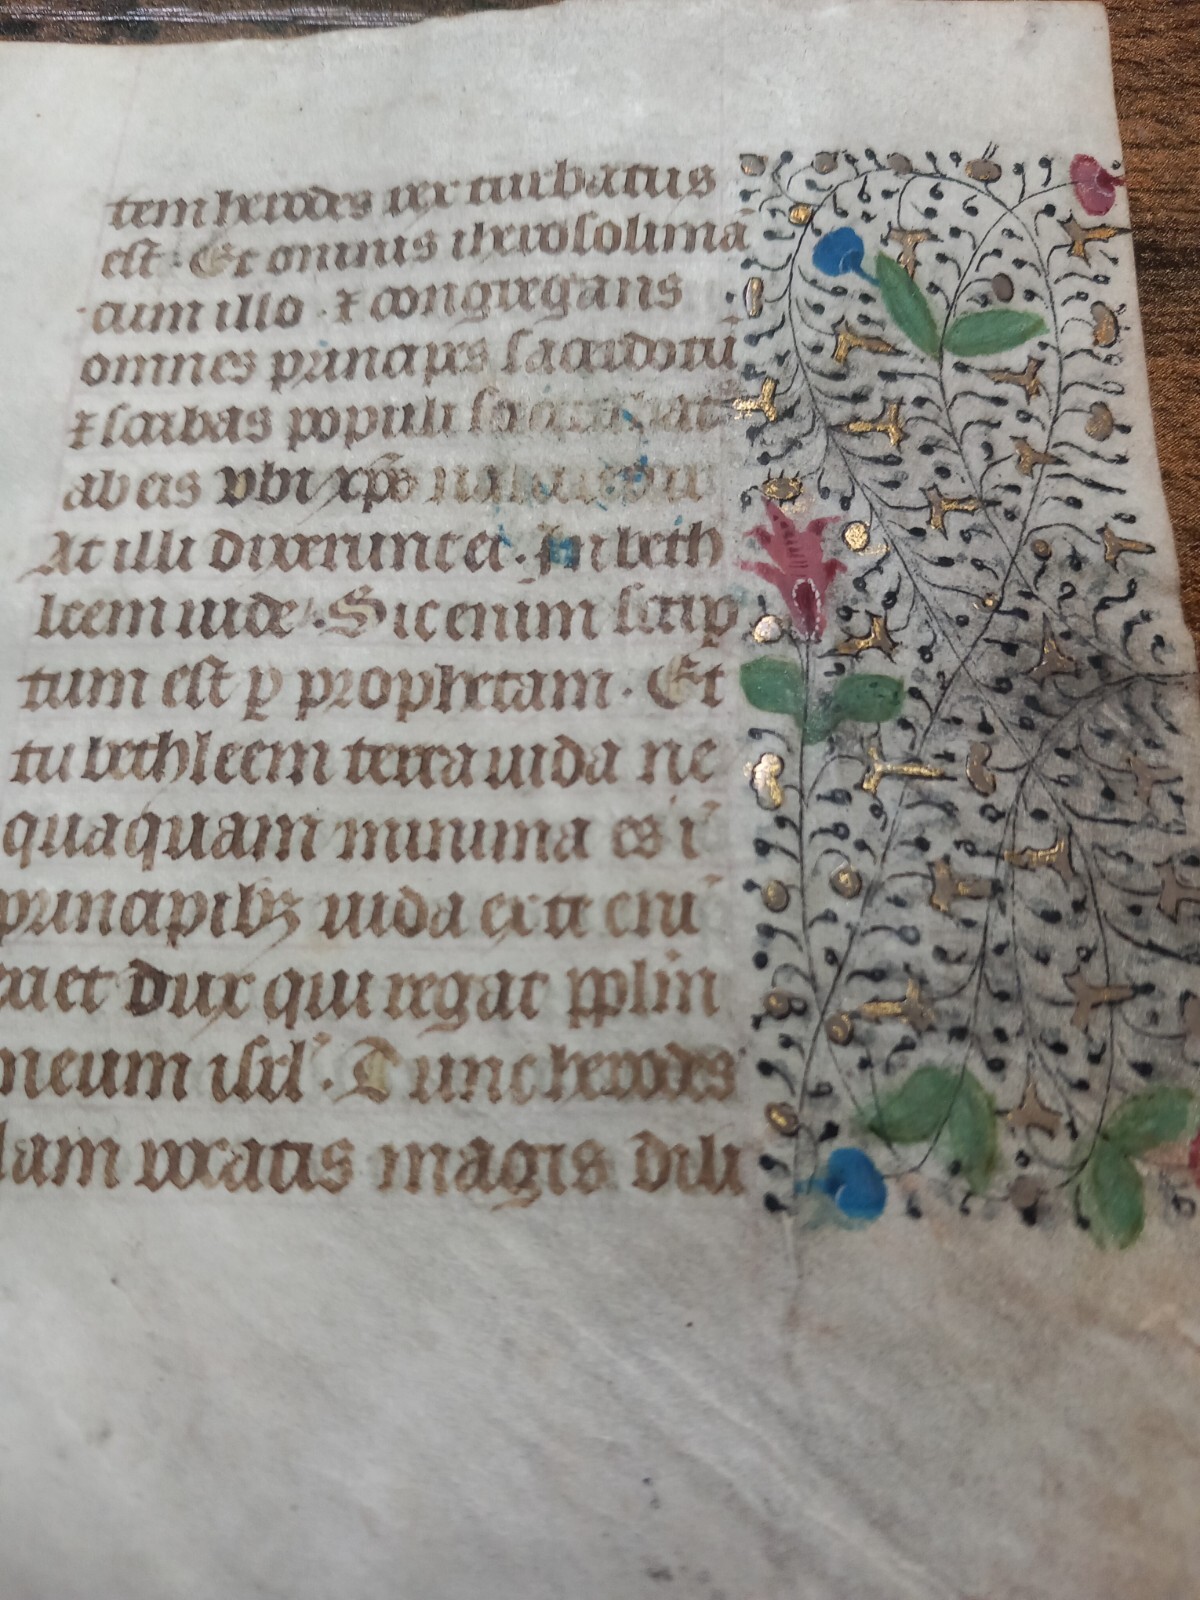 tem herodes rex turbatus
est. Et omnis iherosolima
cum illo. ⁊ congregans
omnes principes sacerdotū
⁊ scribas populi
ab eis vbi xp̄s
At illi dixerunt ei. In beth
leem iude. Sic enim scrip
tum est ꝑ prophetam. Et
tu bethleem terra iuda ne
quaquam minima es ī
principibꝫ iuda ex te eni
et dux qui regat pplm̄
meum isrl̄. Tunc herodes
lam vocatis magis dili